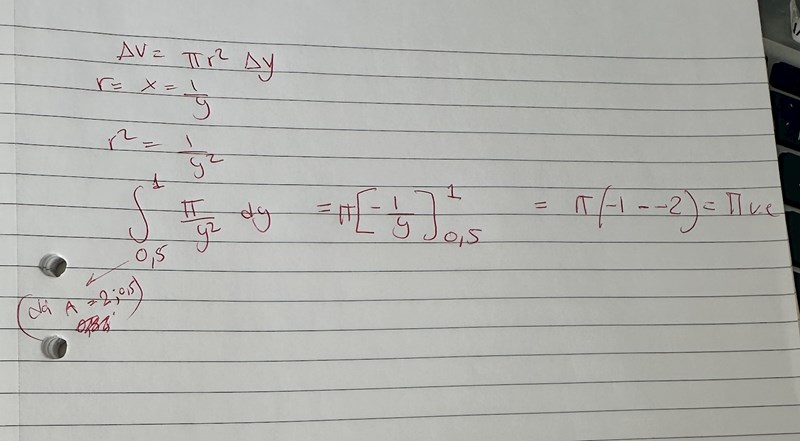 ΔV = πr² Δy
r = x = 1/y
r² = 1/y²
∫_{0,5}^{1} π/y² dy = π[-1/y]_{0,5}^{1} = π(-1--2) = π v.e
(då A = 2;0,5)